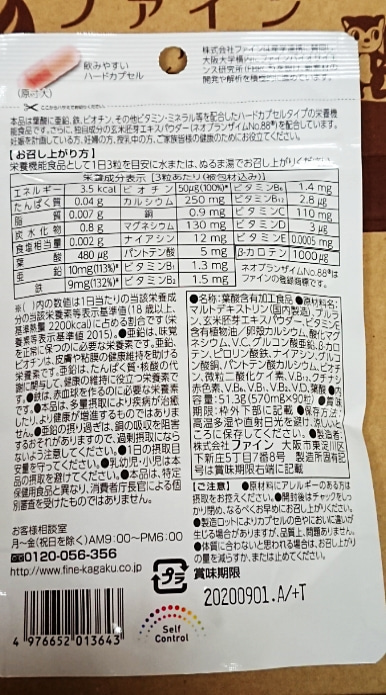 ファイン
飲みやすい
ハードカプセル
(原寸大)
ここから外に出さないでください
本品は葉酸に亜鉛、鉄、ビオチン、その他ビタミン・ミネラル等を配合したハードカプセルタイプの栄養機
能食品です。さらに、独自成分の玄米胚芽エキスパウダー(ネオプランザイムNo.88®)を配合しています。
妊娠を計画している方、妊婦の方、授乳中の方、ご家族皆様の健康のためにお役立てください。
【お召し上がり方】
栄養機能食品として1日3粒を目安に水または、ぬるま湯でお召し上がりください。
栄養成分表示【3粒あたり(被包材込み)】
エネルギー 3.5 kcal ビオチン 50μg(100%)* ビタミンB₆ 1.4 mg
たんぱく質 0.04 g カルシウム 250 mg ビタミンB₁₂ 2.8 μg
脂質 0.007 g 銅 0.9 mg ビタミンC 110 mg
炭水化物 0.8 g マグネシウム 130 mg ビタミンD 3 μg
食塩相当量 0.002 g ナイアシン 12 mg ビタミンE 0.0005 mg
葉酸 1000 μg パントテン酸 5 mg β-カロテン 480 μg
亜鉛 10mg(113%)* ビタミンB₁ 1.3 mg ネオプランザイムNo.88®は
鉄 9mg(132%)* ビタミンB₂ 1.5 mg ファインの登録商標です。
※( )内の数値は1日当たりの当該栄養成
分の当該栄養素等表示基準値(18歳以上、
基準熱量 2200kcal)に占める割合です(栄
養素等表示基準値 2015)。●亜鉛は、味覚
を正常に保つのに必要な栄養素です。亜鉛、
ビオチンは、皮膚や粘膜の健康維持を助ける
栄養素です。亜鉛は、たんぱく質・核酸の代
謝に関与して、健康の維持に役立つ栄養素で
す。●鉄は、赤血球を作るのに必要な栄養素
です。●本品は、多量摂取により疾病が治癒
したり、より健康が増進するものではありま
せん。●亜鉛の摂り過ぎは、銅の吸収を阻害
するおそれがありますので、過剰摂取になら
ないよう注意してください。●1日の摂取目
安量を守ってください。●乳幼児・小児は本
品の摂取を避けてください。●本品は、特定
保健用食品と異なり、消費者庁長官による個
別審査を受けたものではありません。
●名称:葉酸含有加工食品 ●原材料名:
マルトデキストリン(国内製造)、プルラ
ン、玄米胚芽エキスパウダー、ビタミンE
含有植物油／卵殻カルシウム、酸化マグ
ネシウム、V.C、グルコン酸亜鉛、β-カロ
テン、ピロリン酸鉄、ナイアシン、グルコ
ン酸銅、パントテン酸カルシウム、ビオチ
ン、微粒二酸化ケイ素、V.B₁₂、クチナシ
赤色素、V.B₆、V.B₂、V.B₁、V.D、葉酸 ●内
容量:51.3g(570mg×90粒) ●賞味
期限:枠外下部に記載 ●保存方法:
高温多湿や直射日光を避け、涼しいと
ころに保存してください。●製造者:
株式会社ファイン 大阪市東淀川区
下新庄5丁目7番8号 製造所固有記
号は賞味期限右端に記載
【ご注意】 ●原材料にアレルギーのある方は
摂取をお控えください。●開封後はチャックをしっ
かり閉め、なるべくお早めにお召し上がりください。
●製造ロットによりカプセルの色やにおいに違いが
生じる場合がありますが、品質上、問題ありません。
●体質に合わないと思われる場合は、お召し上がり
の量を減らすか、または止めてください。
お客様相談室
月～金(祝日を除く)AM9:00～PM6:00
0120-056-356
http://www.fine-kagaku.co.jp
プラ
賞味期限
20200901.A/+T
4 976652 013643
Self
Control